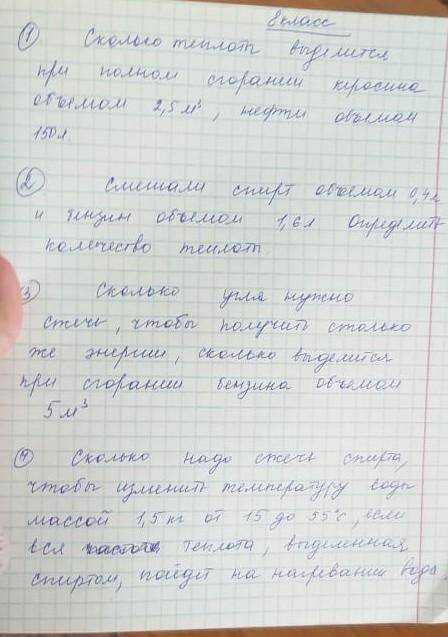 8 класс
① Сколько теплоты выделится
при полном сгорании керосина
объемом 2,5 м³, нефти объемом
150 л.
② Смешали спирт объемом 0,4л
и бензин объемом 1,6л Определить
колечество теплоты.
3 Сколько угля нужно
сжечь, чтобы получить столько
же энергии, сколько выделится
при сгорании бензина объемом
5 м³
④ Сколько надо сжечь спирта,
чтобы изменить температуру воды
массой 1,5 кг от 15 до 55°с, если
вся теплота, выделенная
спиртом, пойдёт на нагревании воды